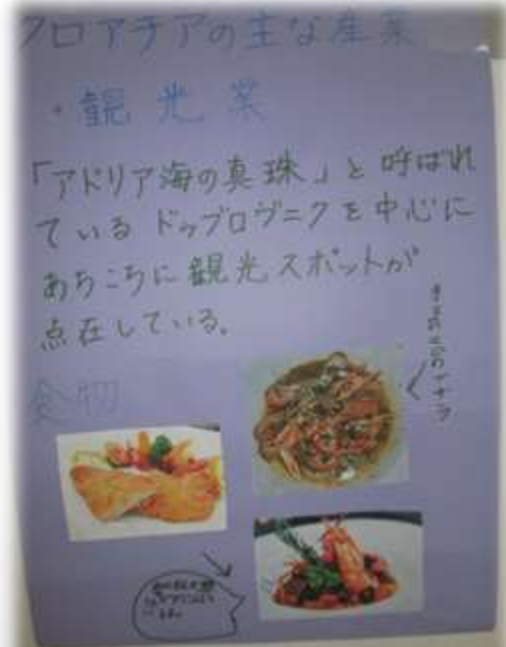 クロアチアの主な産業
・観光業
「アドリア海の真珠」と呼ばれ
ている ドゥブロヴニクを中心に
あちこちに観光スポットが
点在している。
食物